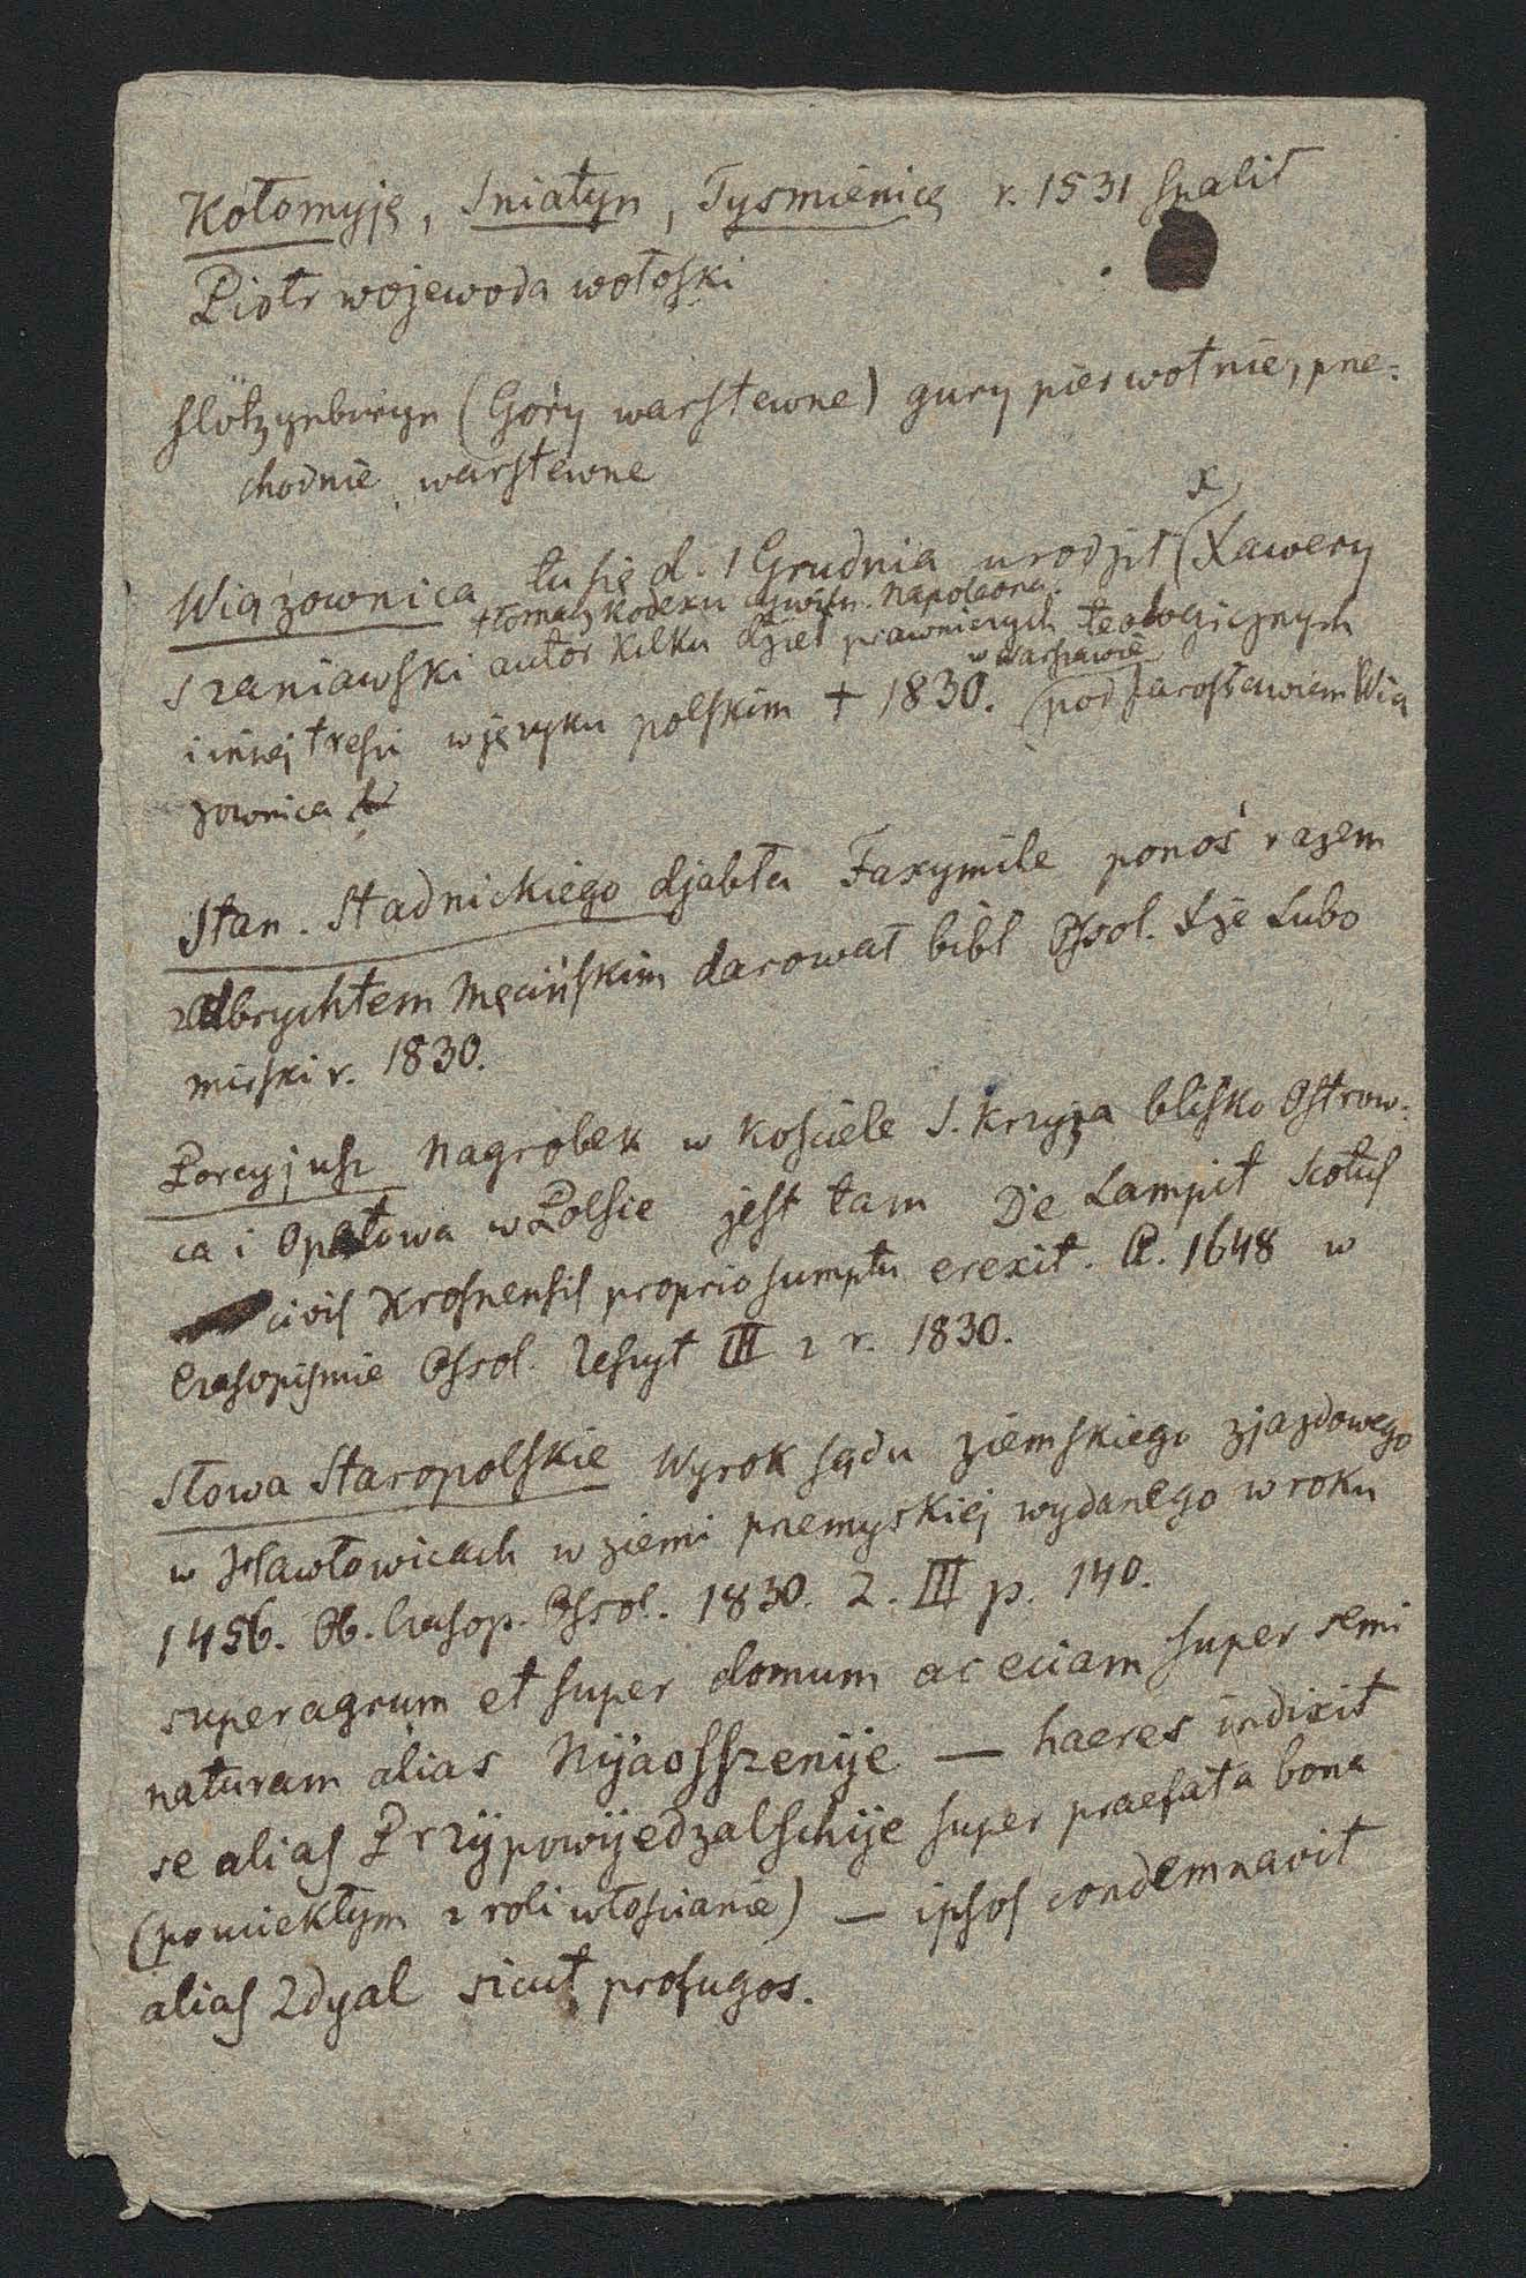 Kołomyję, Sniatyn, Tysmienicę r. 1531 spalił
Piotr wojewoda wołoski
(Góry warstewne) gury pierwotnie, prze=
chodnie warstewne
x
Wiązownica tu się d. 1 Grudnia urodził (Xawery
tłomacz Kodexu cywiln. Napoleona.
Szaniawski autor kilku dzieł prawniczych teologicznych
w Warszawie
i innej treści w języku polskim † 1830. (pod Jarosławiem Wią
zownica
Stan. Stadnickiego djabła Faxymile ponoś razem
z Olbrychtem Męcińskim darował bibl Ossol. Xże Lubo
mirski r. 1830.
Porcyjusz Nagrobek w kościele S. Krzyża blisko Ostrow=
ca i Opatowa w Polsce jest tam De Lampit Scotus
civis Krosnensis proprio sumptu erexit. A. 1648 w
Czasopiśmie Ossol. Zeszyt III z r. 1830.
Słowa Staropolskie Wyrok sądu ziemskiego zjazdowego
w Hawłowicach w ziemi przemyskiej wydanego w roku
1456. Ob. Czasop. Ossol. 1830. Z. III p. 140.
super agrum et super domum ac eciam super semi
naturam alias Nÿaosszenÿe — haeres indixit
se alias Przÿpowÿedzalschÿe super praefata bona
(po uciekłym z roli włościanie) — ipsos condemnavit
alias Zdyal sicut profugos.